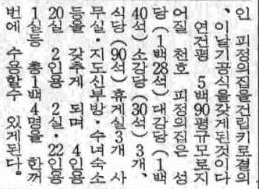 인 피정의집을건립키로결의
이날기공식을갖게된것이다
연건평 5백90평규모로지
어질 천호 피정의집은 성
당(1백28석) 대강당(1백
40석) 소강당(30석)3개、
식당(90석) 휴게실3개 사
무실·지도신부방·수녀숙소
등을 갖추게 되며 4인용
20실 2인용2실·22인용
1실등 총1백4명을 한꺼
번에 수용할수 있게된다.